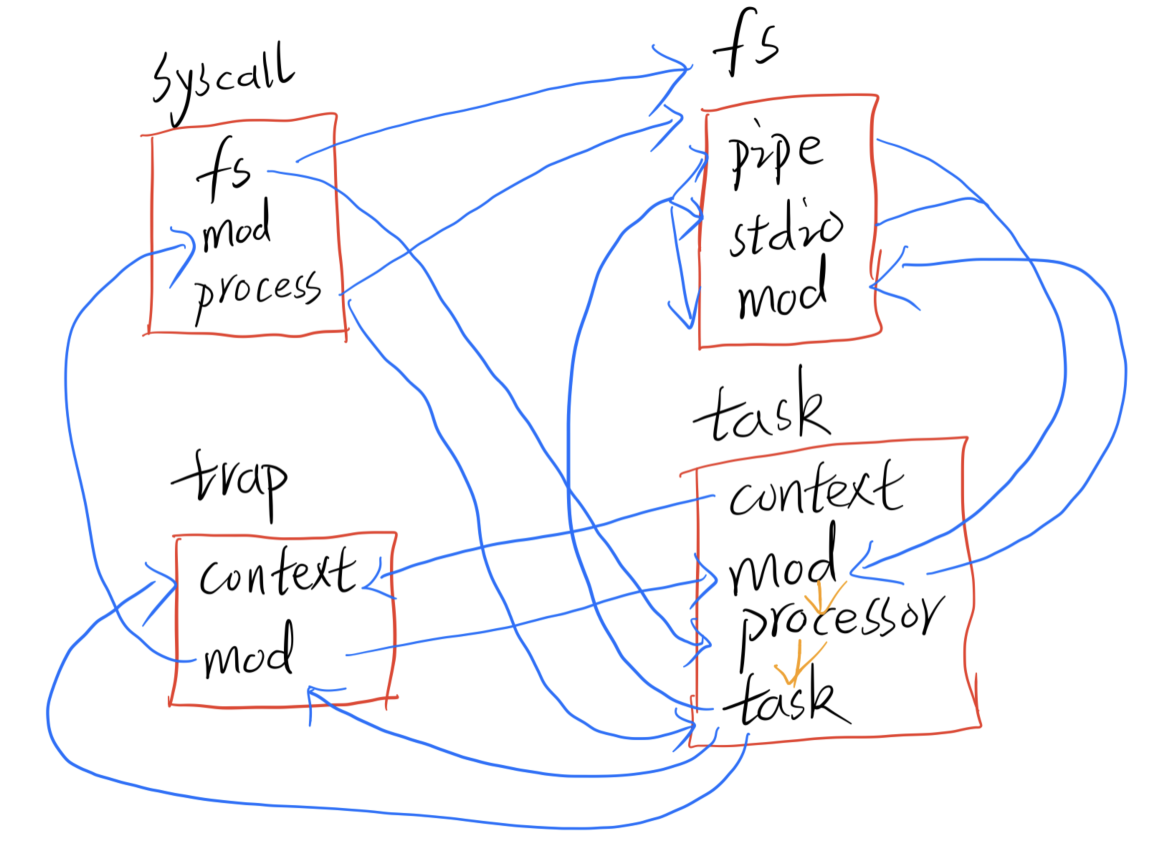 syscall
fs
mod
process
fs
pipe
stdio
mod
trap
context
mod
task
context
mod
processor
task